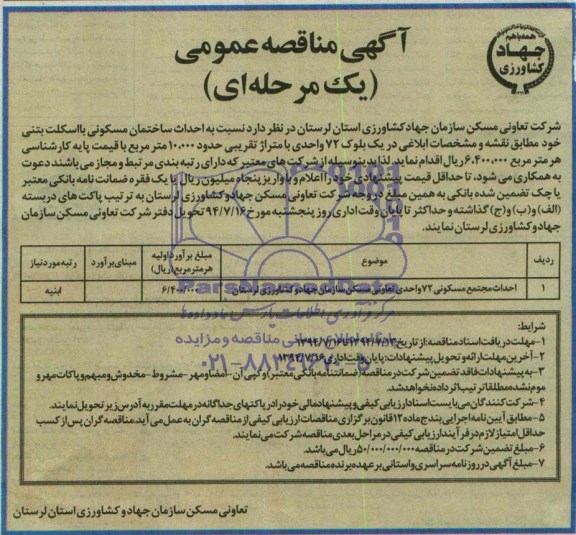 همه با هم
جهاد
کشاورزی
آگهی مناقصه عمومی
(یک مرحله‌ای)
شرکت تعاونی مسکن سازمان جهاد کشاورزی استان لرستان در نظر دارد نسبت به احداث ساختمان مسکونی با اسکلت بتنی
خود مطابق نقشه و مشخصات ابلاغی در یک بلوک ۷۲ واحدی با متراژ تقریبی حدود ۱۰،۰۰۰ متر مربع با قیمت پایه کارشناسی
هر متر مربع ۶،۴۰۰،۰۰۰ ریال اقدام نماید. لذا بدینوسیله از شرکت های معتبر که دارای رتبه بندی مرتبط و مجاز می باشند دعوت
به همکاری می شود، تا حداقل قیمت پیشنهادی خود را اعلام و با واریز پنجاه میلیون ریال یا یک فقره ضمانت نامه بانکی معتبر
یا چک تضمین شده بانکی به همین مبلغ در وجه شرکت تعاونی مسکن جهاد کشاورزی لرستان به ترتیب پاکت های دربسته
(الف) و (ب) و (ج) گذاشته و حداکثر تا پایان وقت اداری روز پنجشنبه مورخ ۹۴/۷/۱۶ تحویل دفتر شرکت تعاونی مسکن سازمان
جهاد و کشاورزی لرستان نمایند.
ردیف موضوع مبلغ برآورد اولیه هر متر مربع (ریال) مبنای برآورد رتبه مورد نیاز
۱ احداث مجتمع مسکونی ۷۲ واحدی تعاونی مسکن سازمان جهاد و کشاورزی لرستان ۶/۴۰۰/۰۰۰ ابنیه
شرایط:
۱- مهلت دریافت اسناد مناقصه: از تاریخ
۲- آخرین مهلت ارائه و تحویل پیشنهادات: پایان وقت اداری ۱۳۹۴/۷/۱۶
۳- به پیشنهادات فاقد تضمین شرکت در مناقصه (ضمانتنامه بانکی معتبر) و کپی آن - امضا و مهر - مشروط - مخدوش و مبهم و پاکات مهر و
موم نشده مطلقا ترتیب اثر داده نخواهد شد.
۴- شرکت کنندگان می بایست اسناد ارزیابی کیفی و پیشنهاد مالی خود را در پاکتهای جداگانه در مهلت مقرر به آدرس زیر تحویل نمایند.
۵- مطابق آیین نامه اجرایی بند ج ماده ۱۲ قانون برگزاری مناقصات ارزیابی کیفی از مناقصه گران به عمل می آید. مناقصه گران پس از کسب
حداقل امتیاز لازم در فرآیند ارزیابی کیفی در مراحل بعدی مناقصه شرکت می نمایند.
۶- مبلغ تضمین شرکت در مناقصه ۵۰/۰۰۰/۰۰۰ ریال می باشد.
۷- مبلغ آگهی در روزنامه سراسری و استانی بر عهده برنده مناقصه می باشد.
تعاونی مسکن سازمان جهاد و کشاورزی استان لرستان